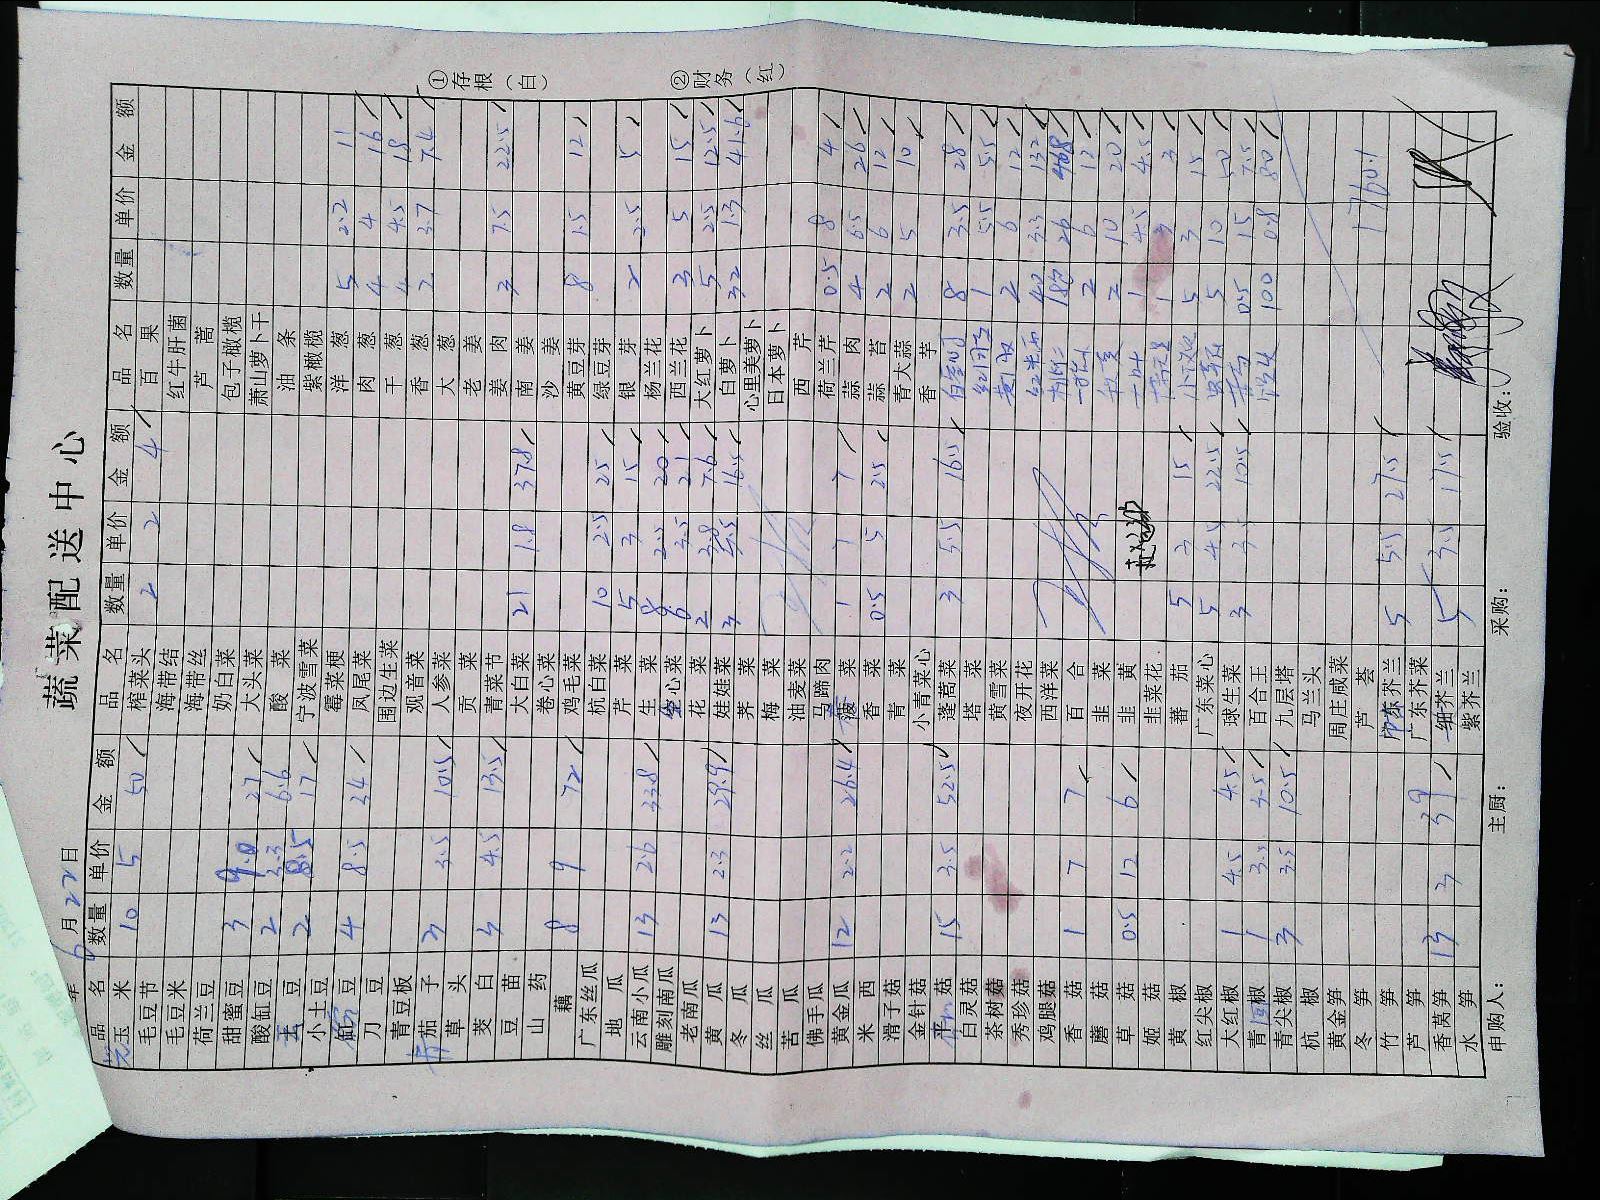 蔬菜配送中心
年 6月22日
品名 数量 单价 金额 品名 数量 单价 金额 品名 数量 单价 金额
玉米 10 5 50 榨菜头 2 2 4 百果
毛豆节 海带结 红牛肝菌
毛豆米 海带丝 芦蒿
荷兰豆 奶白菜 包子橄榄
甜蜜豆 3 27 大头菜 萧山萝卜干
酸豇豆 2 3.3 6.6 酸菜 油条
豆 2 8.5 17 宁波雪菜 紫橄榄
小土豆 霉菜梗 洋葱 5 2.2 11
豆 4 8.5 34 凤尾菜 肉葱 4 4 16
刀豆 围边生菜 干葱 4 4.5 18
青豆板 观音菜 香葱 2 3.7 7.4
茄子 3 3.5 10.5 人参菜 大葱
草头 贡菜 老姜
茭白 3 4.5 13.5 青菜节 姜肉 3 7.5 22.5
豆苗 大白菜 21 1.8 37.8 南姜
山药 卷心菜 沙姜
藕 8 9 72 鸡毛菜 黄豆芽 8 1.5 12
广东丝瓜 杭白菜 10 2.5 25 绿豆芽
地瓜 芹菜 5 3 15 银芽 2 2.5 5
云南小瓜 13 2.6 33.8 生菜 8 2.5 20 杨兰花
雕刻南瓜 空心菜 6 3.5 21 西兰花 3 5 15
老南瓜 花菜 2 3.8 7.6 大红萝卜 5 2.5 12.5
黄瓜 13 2.3 29.9 娃娃菜 3 5.5 16.5 白萝卜 32 1.3 41.6
冬瓜 荠菜 心里美萝卜
丝瓜 梅菜 日本萝卜
苦瓜 油麦菜 西芹
佛手瓜 马蹄肉 荷兰芹 0.5 8 4
黄金瓜 12 2.2 26.4 菠菜 1 7 7 蒜肉 4 6.5 26
米西 香菜 0.5 5 2.5 蒜苔 2 6 12
滑子菇 青菜 青大蒜 2 5 10
金针菇 小青菜心 香芋
菇 15 3.5 52.5 蓬蒿菜 3 5.5 16.5 8 3.5 28
白灵菇 塔菜 1 5.5 5.5
茶树菇 黄雪菜 2 6 12
秀珍菇 夜开花 40 3.3 132
鸡腿菇 西洋菜 26 468
香菇 1 7 7 百合 2 6 12
蘑菇 韭菜 2 10 20
草菇 0.5 12 6 韭黄 1 4.5 4.5
姬菇 韭菜花 1 3 3
黄椒 蕃茄 5 3 15 5 3 15
红尖椒 广东菜心 5 4.5 22.5 5 10 50
大红椒 1 4.5 4.5 球生菜 3 3.5 10.5 0.5 15 7.5
青回椒 1 3.5 3.5 百合王 100 0.8 80
青尖椒 3 3.5 10.5 九层塔
杭椒 马兰头
黄金笋 周庄咸菜
冬笋 芦荟 1760.1
竹笋 芥兰 5 5.5 27.5
芦笋 广东芥菜
香莴笋 13 3 39 细芥兰 5 3.5 17.5
水笋 紫芥兰
申购人： 主厨： 采购： 验收：
①存根（白）
②财务（红）